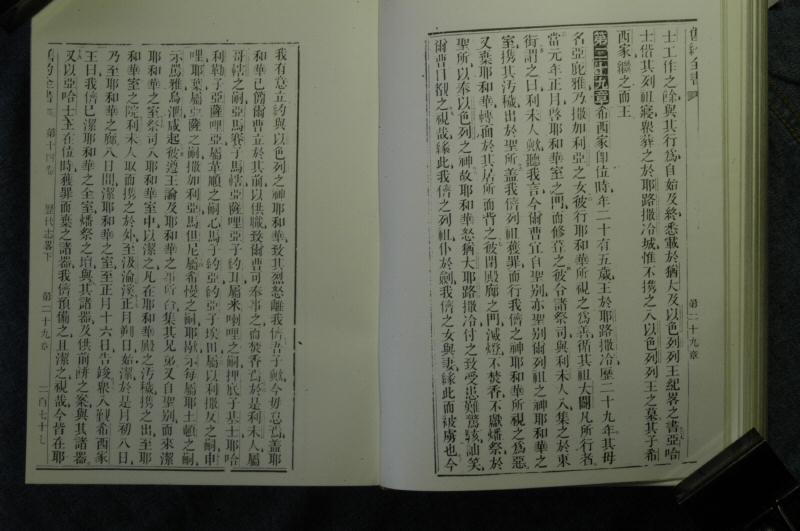 舊約全書
士工作之餘與其行爲自始及終悉載於猶大及以色列列王紀畧之書亞哈
士偕其列祖寢衆葬之於耶路撒冷城惟不攜之入以色列列王之墓其子希
西家繼之而王
第二十九章希西家卽位時年二十有五歲王於耶路撒冷歷二十九年其母
名亞庇雅乃撒加利亞之女彼行耶和華所視之爲善循其祖大闢凡所行者
當元年正月啓耶和華室之門而修葺之彼合諸祭司與利未人入集之於東
街謂之曰利未人歟聽我言今爾曹宜自聖別亦聖別爾列祖之神耶和華之
室攜其汚穢出於聖所蓋我儕列祖獲罪而行我儕之神耶和華所視之爲惡
又棄耶和華轉面於其居所而背之彼閉殿廊之門滅燈不焚香不獻燔祭於
聖所以奉以色列之神故耶和華怒猶大耶路撒冷付之致受患難驚駭訕笑
爾曹目覩之視哉緣此我儕之列祖仆於劍我儕之女與妻緣此而被虜也今
第二十九章
我有意立約與以色列之神耶和華致其烈怒離我儕吾子歟今毋忽焉蓋耶
和華已簡爾曹立於其前以供職致爾曹可奉事之而焚香焉於是利未人屬
哥轄之嗣亞馬賽子馬轄亞薩哩亞子約耳屬米喇哩之嗣押底子其士耶哈
利勒子亞薩哩亞屬革順之嗣心馬子約亞約亞子埃田屬以利撒反之嗣申
哩耶葉屬亞薩之嗣撒加利亞馬但尼屬希幔之嗣耶歇示每屬耶土頓之嗣
示罵雅烏泄咸起彼遵王諭及耶和華之命所合集其兄弟又自聖別而來潔
耶和華之室祭司入耶和華室中以潔之凡在耶和華殿之汚穢攜之出至耶
和華室之院利未人取而攜之於外至汲淪溪正月朔日始潔於是月初八日
乃至耶和華之廊八日間潔耶和華之室至正月十六日告竣衆入覲希西家
王曰我儕已潔耶和華之全室燔祭之壇與其諸器及供前餅之案與其諸器
又以亞哈士王在位時獲罪而棄之諸器我儕預備之且潔之視哉今皆在耶
舊約全書 第十四卷 歷代志畧下 第二十九章 二百七十七